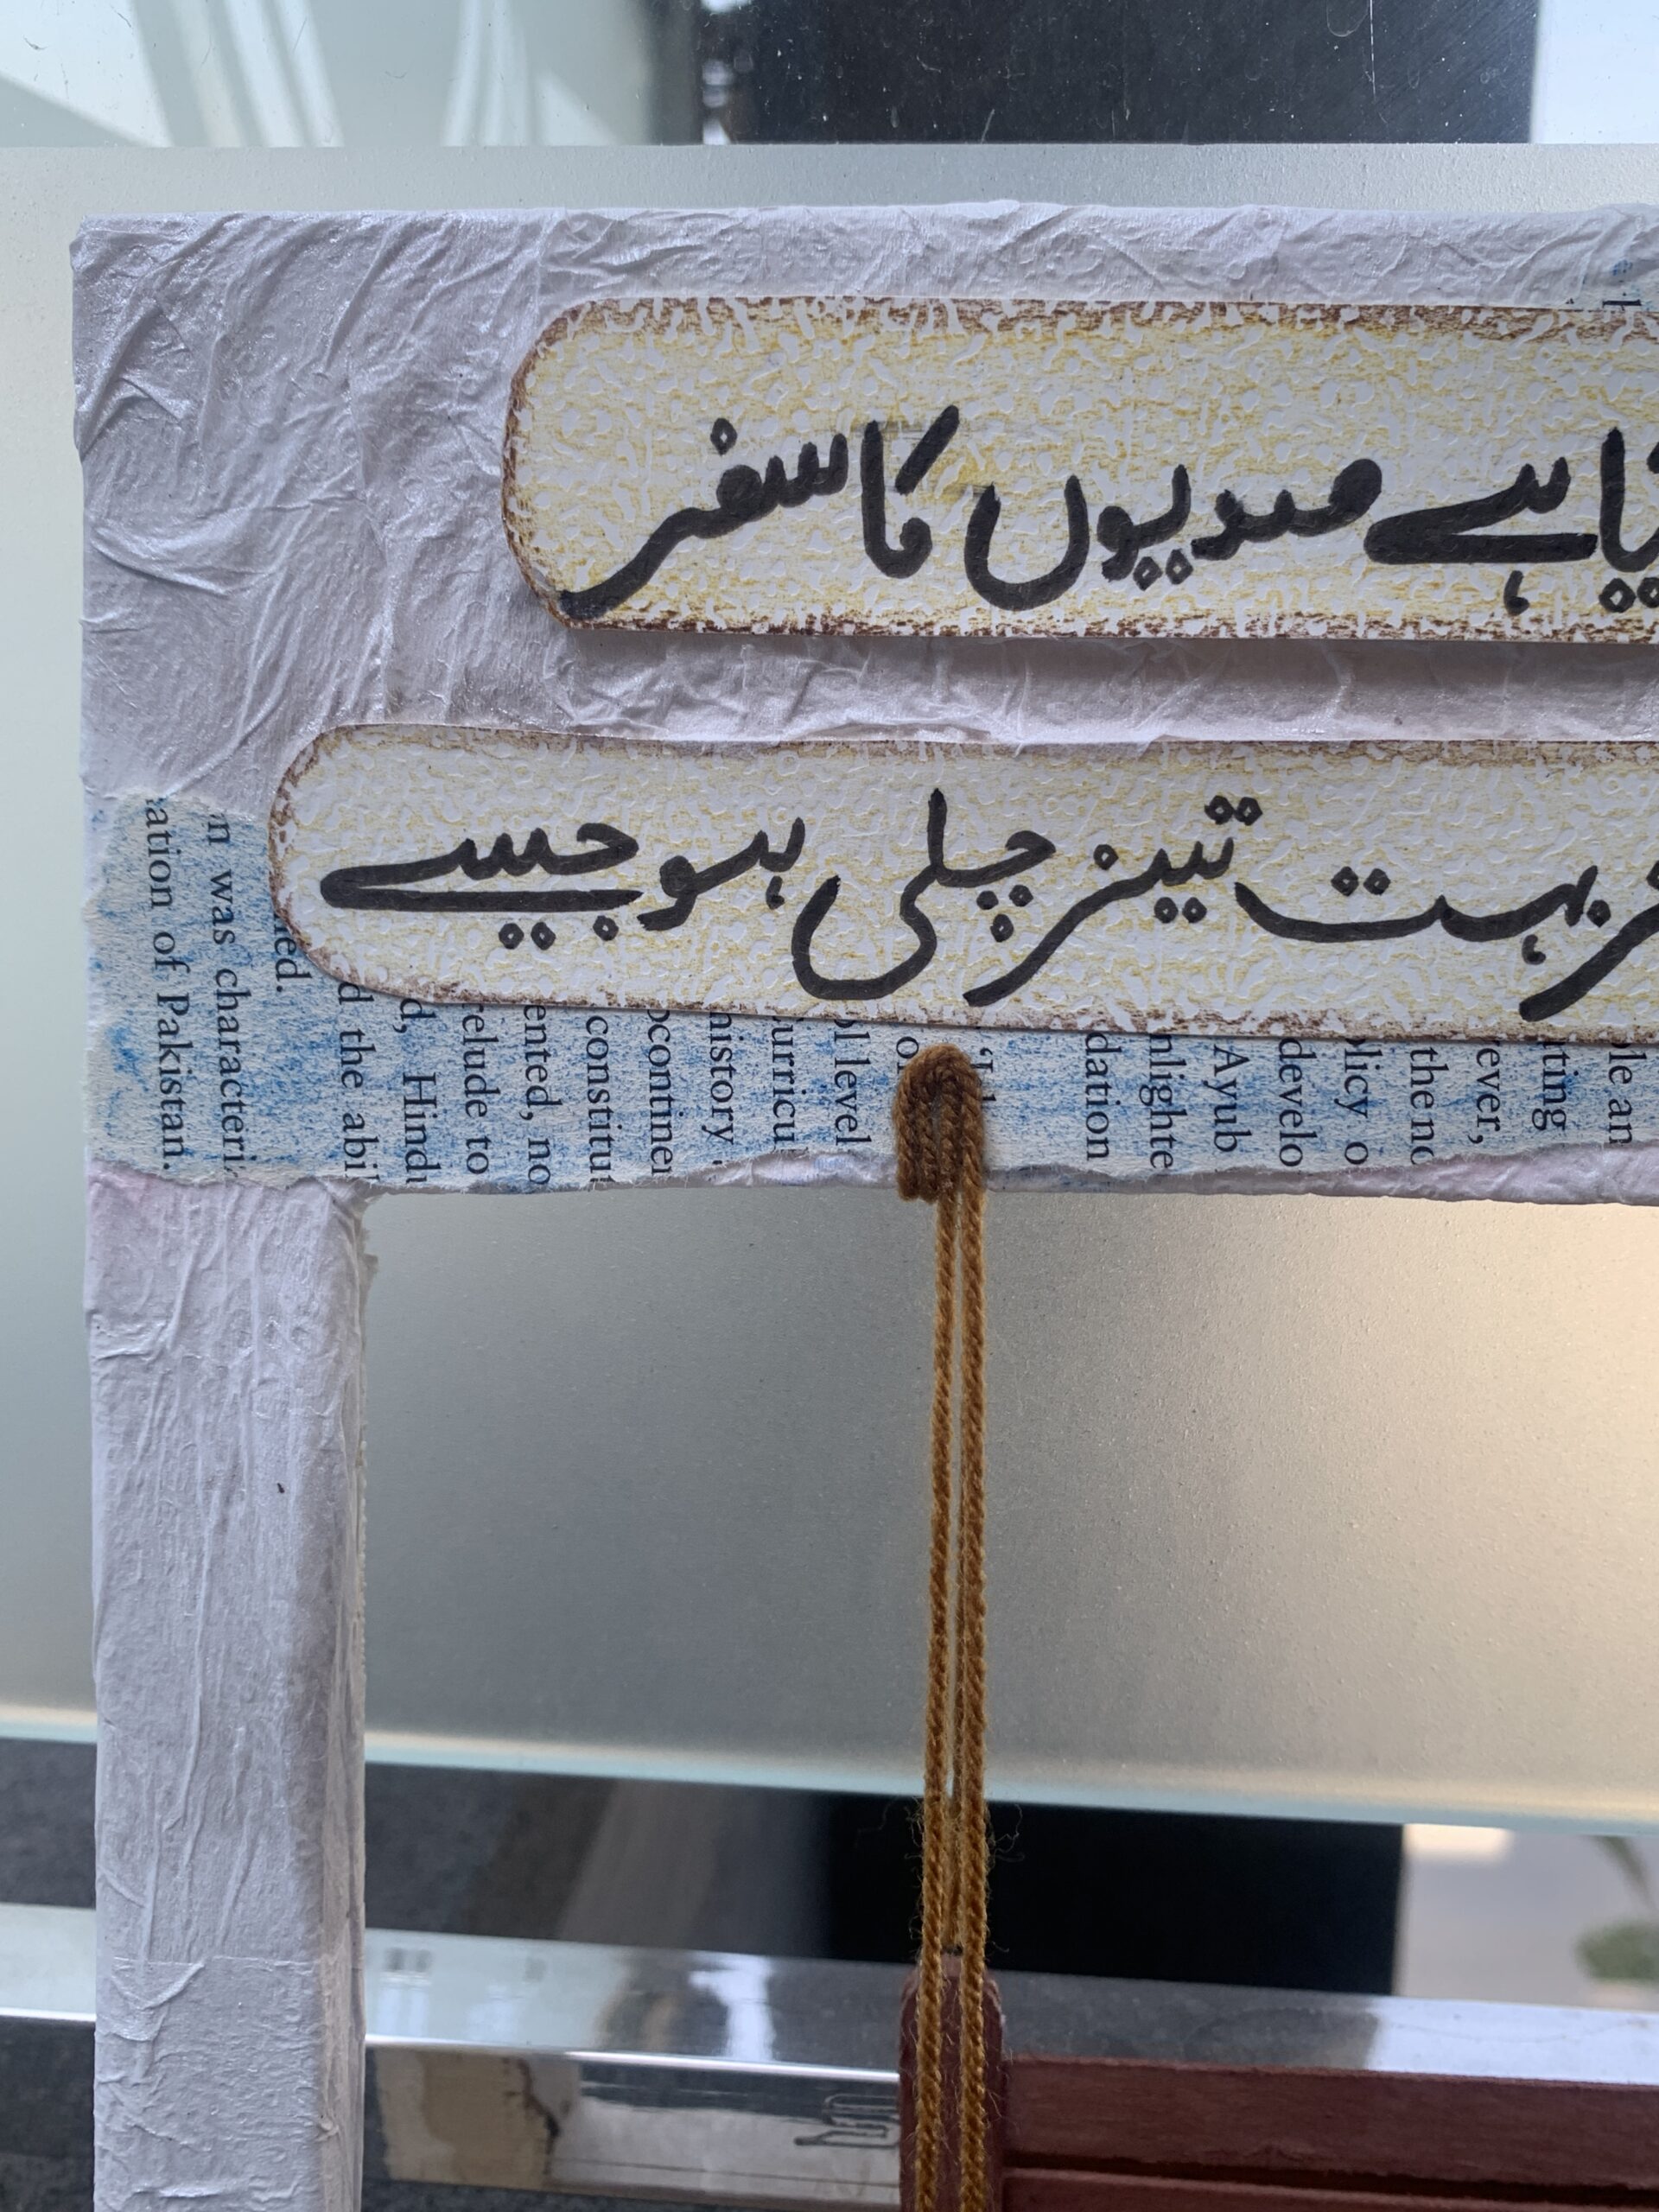 ہے صدیوں کا سفر
بہت تیز چلی ہو جیسے
le an
ting
ever,
the no
licy o
develo
Ayub
nlighte
dation
ol level
urricu
history
ocontinen
constitut
ented, no
elude to
d, Hindu
d the abil
ned.
n was characteri
ation of Pakistan.